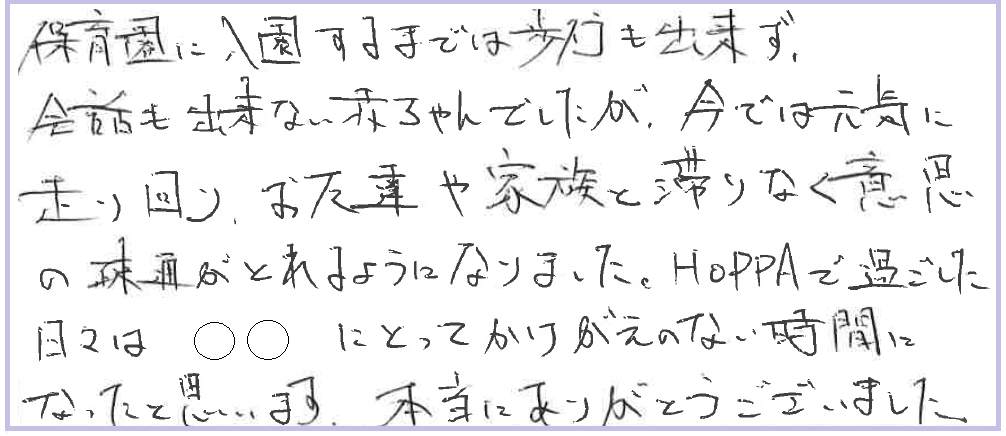 保育園に入園するまでは歩行も出来ず、
会話も出来ない赤ちゃんでしたが、今では元気に
走り回り、お友達や家族と滞りなく意思
の疎通がとれるようになりました。HOPPAで過ごした
日々は ○○ にとってかけがえのない時間に
なったと思います。本当にありがとうございました